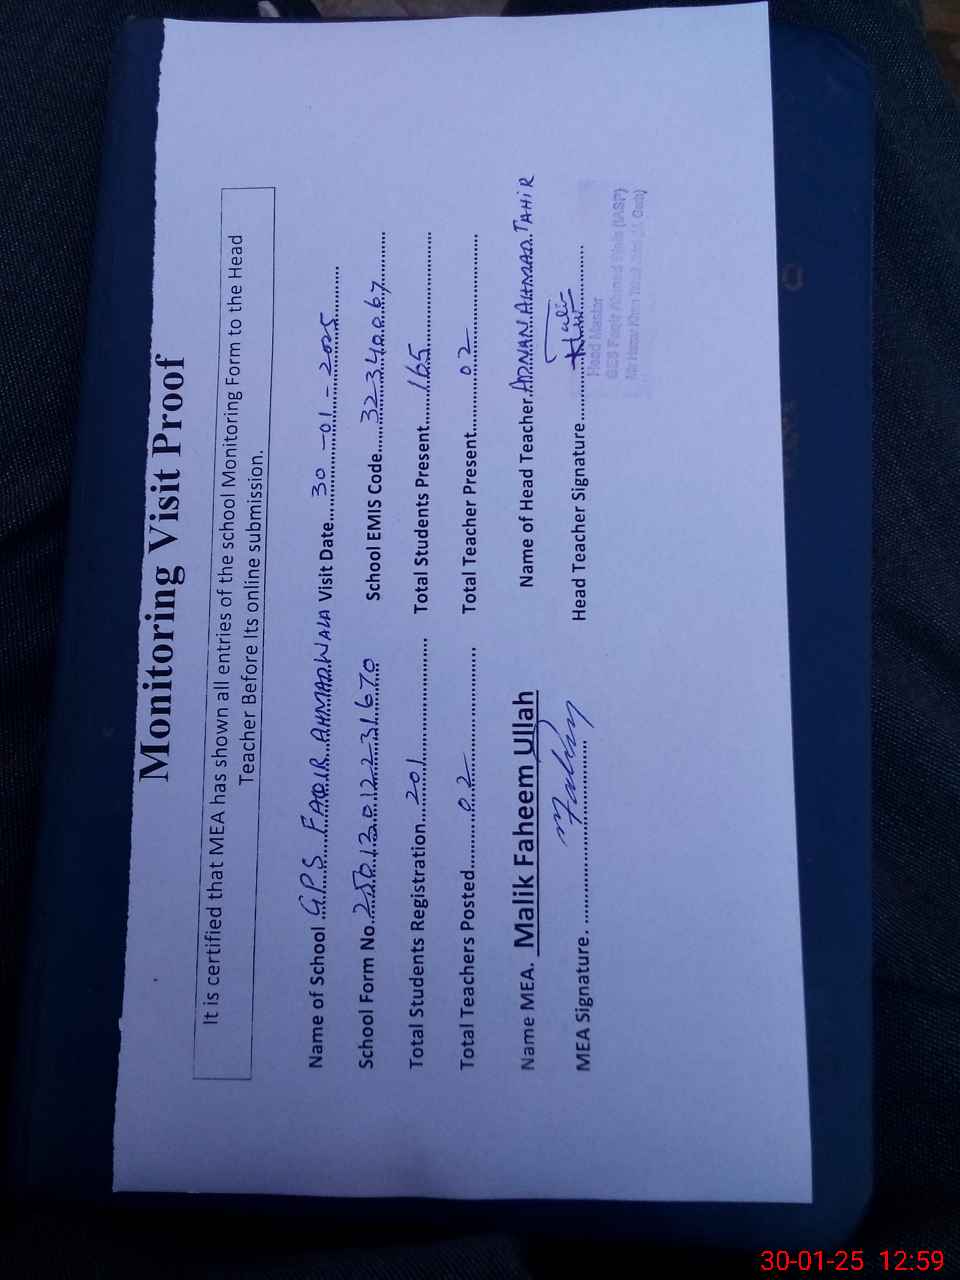 Monitoring Visit Proof
It is certified that MEA has shown all entries of the school Monitoring Form to the Head
Teacher Before Its online submission.
Name of School G.P.S FAQIR AHMAD WALA Visit Date 30-01-2025
School Form No. 25012012231670 School EMIS Code 32340067
Total Students Registration 201 Total Students Present 165
Total Teachers Posted 02 Total Teacher Present 02
Name MEA. Malik Faheem Ullah Name of Head Teacher ADNAN AHMAD TAHIR
MEA Signature. Head Teacher Signature
Head Master
30-01-25 12:59